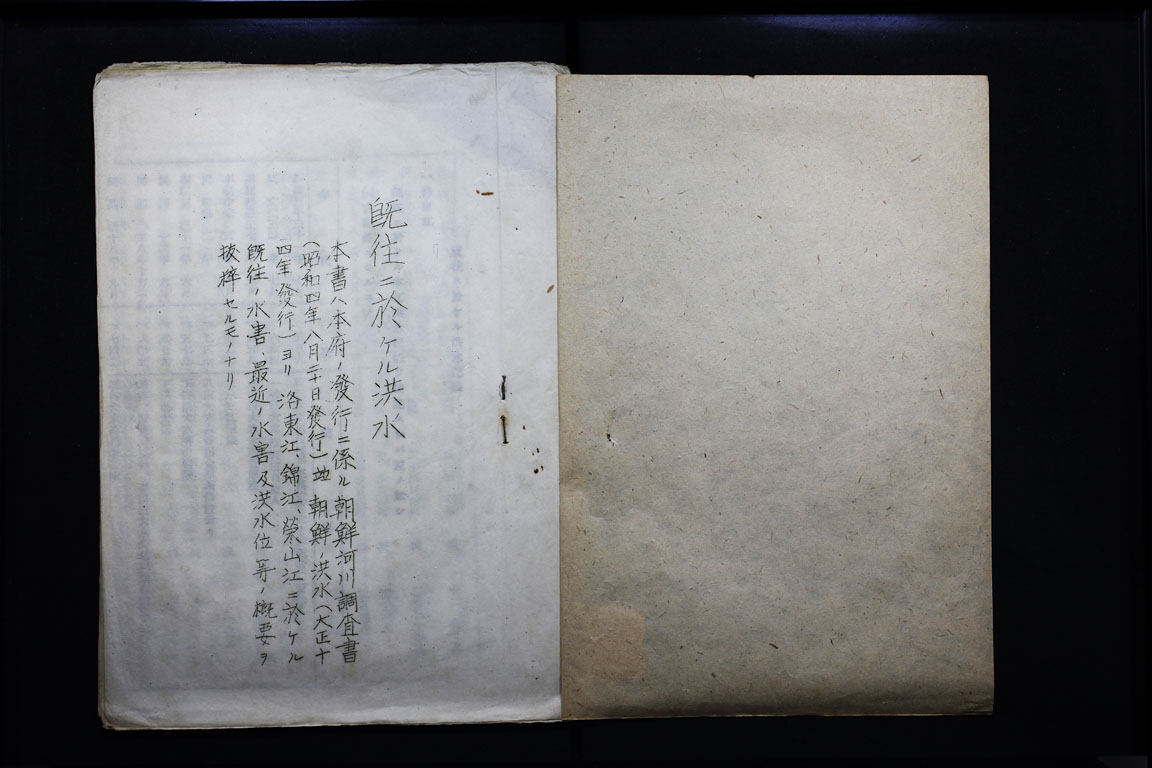 既往ニ於ケル洪水
本書ハ本府ノ發行ニ係ル朝鮮河川調査書
(昭和四年八月二十日發行)並朝鮮ノ洪水(大正十
四年發行)ヨリ洛東江、錦江、榮山江ニ於ケル
既往ノ水害、最近ノ水害及洪水位等ノ概要ヲ
抜粹セルモノナリ